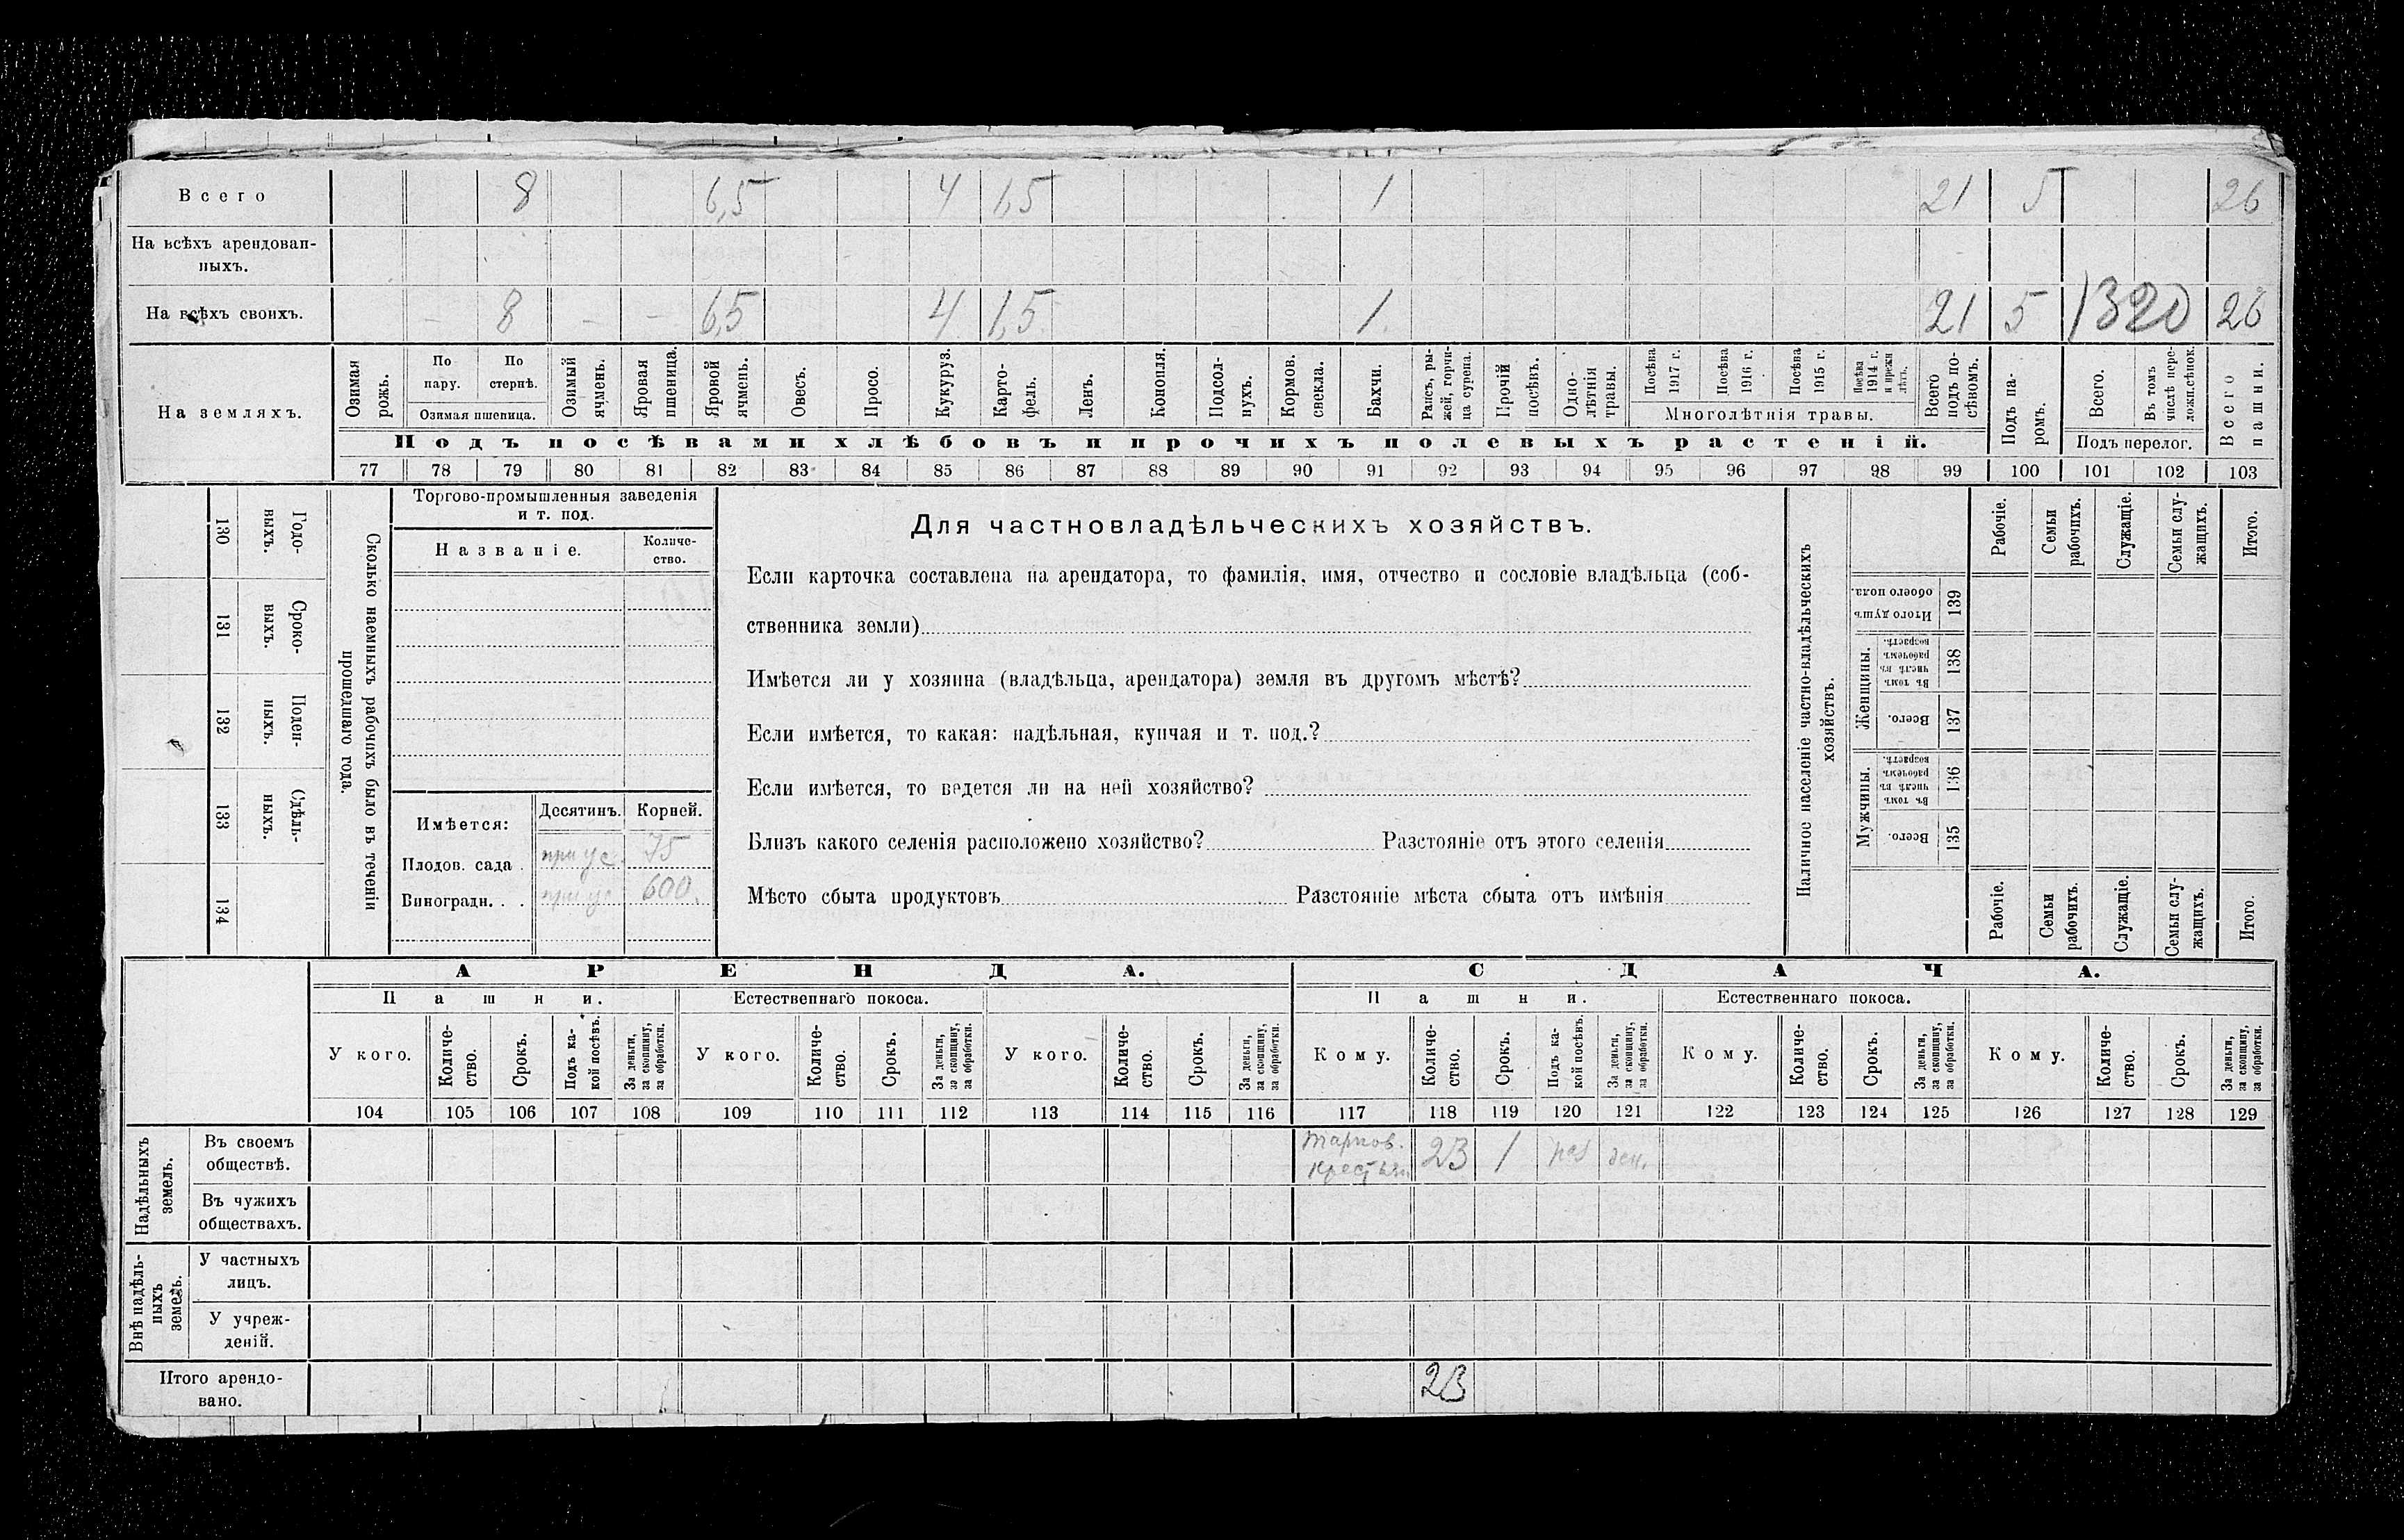 Всего 8 6,5 4 1,5 1 21 5 26
На всѣхъ арендован-
ныхъ.
На всѣхъ своихъ. — 8 — — 6,5 4 1,5 1. 21 5 1320 26
На земляхъ.
Озимая рожь.
По пару.
По стернѣ.
Озимая пшеница.
Озимый ячмень.
Яровая пшеница.
Яровой ячмень.
Овесъ.
Просо.
Кукуруз.
Карто-
фель.
Ленъ.
Конопля.
Подсол-
нухъ.
Кормов. свекла.
Бахчи.
Рапсъ, ры-
жей, горчи-
ца сурепа.
Прочій посѣвъ.
Одно-
лѣтнія травы.
Посѣва 1917 г.
Посѣва 1916 г.
Посѣва 1915 г.
Посѣва 1914 г. и прежн лѣтъ.
Многолѣтнія травы.
Всего подъ по-
сѣвомъ.
Подъ па-
ромъ.
Всего.
Въ томъ числѣ пере-
ложн.сѣнок.
Подъ перелог.
Всего пашни.
Подъ посѣвами хлѣбовъ и прочихъ полевыхъ растеній.
77 78 79 80 81 82 83 84 85 86 87 88 89 90 91 92 93 94 95 96 97 98 99 100 101 102 103
130 Годо-
выхъ.
131 Сроко-
выхъ.
132 Поден-
ныхъ.
133 Сдѣль-
ныхъ.
134
Сколько наемныхъ рабочихъ было въ теченіи
прошедшаго года.
Торгово-промышленныя заведенія
и т. под.
Названіе.
Количе-
ство.
Имѣется: Десятинъ. Корней.
Плодов. сада . при ус. 75
Виноградн. . . при ус 600.
Для частновладѣльческихъ хозяйствъ.
Если карточка составлена на арендатора, то фамилія, имя, отчество и сословіе владѣльца (соб-
ственника земли)
Имѣется ли у хозяина (владѣльца, арендатора) земля въ другомъ мѣстѣ?
Если имѣется, то какая: надѣльная, купчая и т. под.?
Если имѣется, то ведется ли на ней хозяйство?
Близъ какого селенія расположено хозяйство? Разстояніе отъ этого селенія
Мѣсто сбыта продуктовъ Разстояніе мѣста сбыта отъ имѣнія
Наличное населеніе частно-владѣльческихъ
хозяйствъ.
Рабочіе.
Семьи рабочихъ.
Служащіе.
Семьи слу-
жащихъ.
Итого.
Итого душъ обоего пола. 139
Женщины.
Въ томъ числѣ въ рабочемъ возрастѣ. 138
Всего. 137
Мужчины.
Въ томъ числѣ въ рабочемъ возрастѣ. 136
Всего. 135
Рабочіе.
Семьи рабочихъ.
Служащіе.
Семьи слу-
жащихъ.
Итого.
АРЕНДА. СДАЧА.
Пашни. Естественнаго покоса. Пашни. Естественнаго покоса.
У кого.
Количе-
ство.
Срокъ.
Подъ ка-
кой посѣвъ.
За деньги, за скопщину, за обработки.
У кого.
Количе-
ство.
Срокъ.
За деньги, за скопщину, за обработки.
У кого.
Количе-
ство.
Срокъ.
За деньги, за скопщину, за обработки.
Кому.
Количе-
ство.
Срокъ.
Подъ ка-
кой посѣвъ.
За деньги, за скопщину, за обработки.
Кому.
Количе-
ство.
Срокъ.
За деньги, за скопщину, за обработки.
Кому.
Количе-
ство.
Срокъ.
За деньги, за скопщину, за обработки.
104 105 106 107 108 109 110 111 112 113 114 115 116 117 118 119 120 121 122 123 124 125 126 127 128 129
Надѣльныхъ
земель.
Въ своемъ
обществѣ. 23 1 раз ден.
Въ чужихъ
обществахъ.
Внѣ надѣль-
ныхъ
земель.
У частныхъ
лицъ.
У учреж-
деній.
Итого арендо-
вано. 23